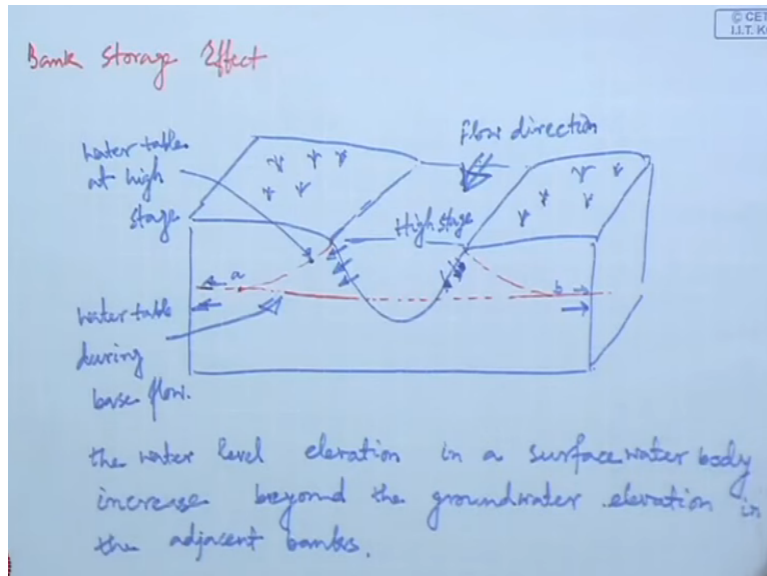 © CET
I.I.T. K
Bank Storage Effect
Flow direction
water table
at high
stage
High stage
a
b
water table
during
base flow.
the water level elevation in a surface water body
increase beyond the groundwater elevation in
the adjacent banks.